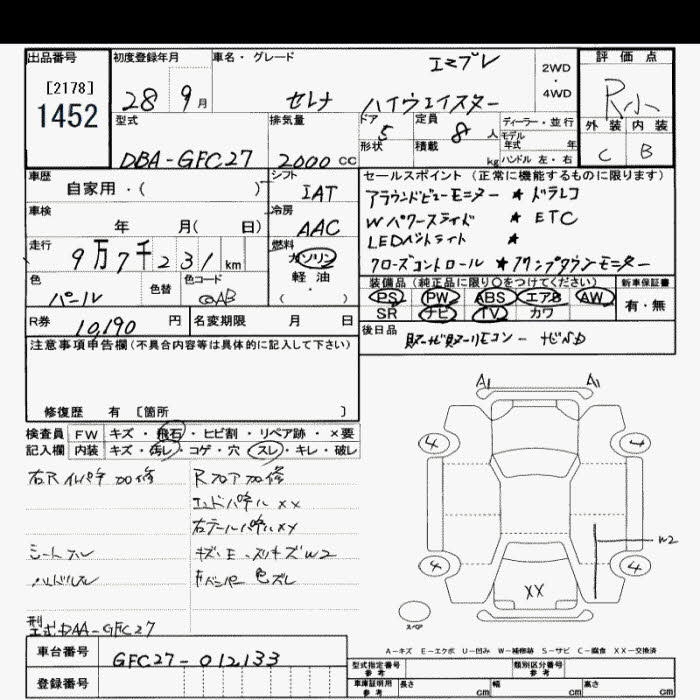 出品番号
[2178]
1452
初度登録年月
28 9月
車名・グレード
セレナ ハイウェイスター
2WD
・
4WD
評価点
R小
外装 内装
C B
型式
DBA-GFC27
排気量
2000 CC
ドア
5
形状
定員
8 人
積載
kg
ディーラー・並行
モデル
年式 年
ハンドル 左・右
車歴
自家用・( )
シフト
IAT
車検
年 月( 日)
冷房
AAC
走行
9万7千231 km
燃料
ガソリン
軽油
・
( )
色
パール
色替
色コード
QAB
R券
10,190 円
名変期限 月 日
セールスポイント(正常に機能するものに限ります)
アラウンドビューモニター ★ドラレコ
Wパワースライド ★ ETC
LEDヘッドライト ★
クローズコントロール ★フリップダウンモニター
装備品(純正品に限り○をつけてください)
PS PW ABS エアB AW
SR ナビ TV カワ
新車保証書
有・無
後日品
注意事項申告欄(不具合内容等は具体的に記入して下さい)
修復歴 有 [箇所 ]
検査員 FW キズ・飛石・ヒビ割・リペア跡・×要
記入欄 内装 キズ・汚レ・コゲ・穴・スレ・キレ・破レ
右Rインパネ加修
Rフロア加修
エンドパネルXX
右テールパネルXX
シートスレ
キズ・E・スリキズW2
ハンドルスレ
Rバンパー色ズレ
型式DAA-GFC27
車台番号
GFC27-012133
登録番号
A1 A1
4 4
4 4
W2
XX
スペア
A-キズ E-エクボ U-凹み W-補修跡 S-サビ C-腐食 XX-交換済
型式指定番号
参考
類別区分番号
参考
車庫証明用
参考
長さ cm
幅 cm
高さ cm